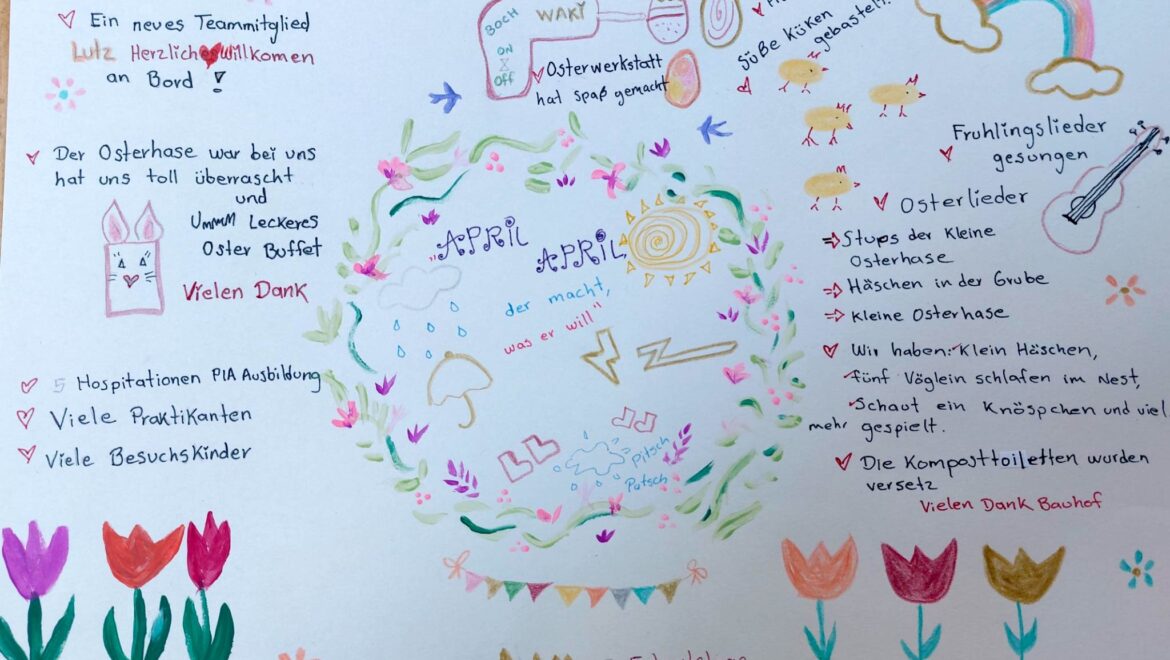 Ein neues Teammitglied
Lutz Herzliches Willkomen
an Bord !
Der Osterhase war bei uns
hat uns toll überrascht
und
Ummm Leckeres
Oster Buffet
Vielen Dank
5 Hospitationen PIA Ausbildung
Viele Praktikanten
Viele Besuchskinder
BOCH
WAKI
ON
OFF
Osterwerkstatt
hat Spaß gemacht
"APRIL
APRIL
der macht,
was er will"
Pitsch
Patsch
süße Küken
gebastelt
Fruhlingslieder
gesungen
Osterlieder
⇒ Stups der Kleine
Osterhase
⇒ Häschen in der Grube
⇒ Kleine Osterhase
Wir haben: Klein Häschen,
fünf Vöglein schlafen im Nest,
Schaut ein Knöspchen und viel
mehr gespielt.
Die Komposttoiletten wurden
versetz
Vielen Dank Bauhof